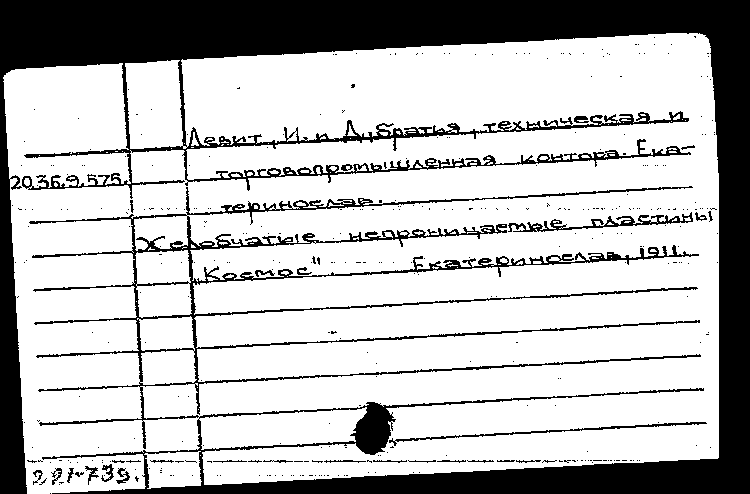 Левит, И. и Д, братья, техническая и
20.36.9.575. торговопромышленная контора. Ека-
теринослав.
Желобчатые непроницаемые пластины
„Космос". Екатеринослав, 1911.
221-739.